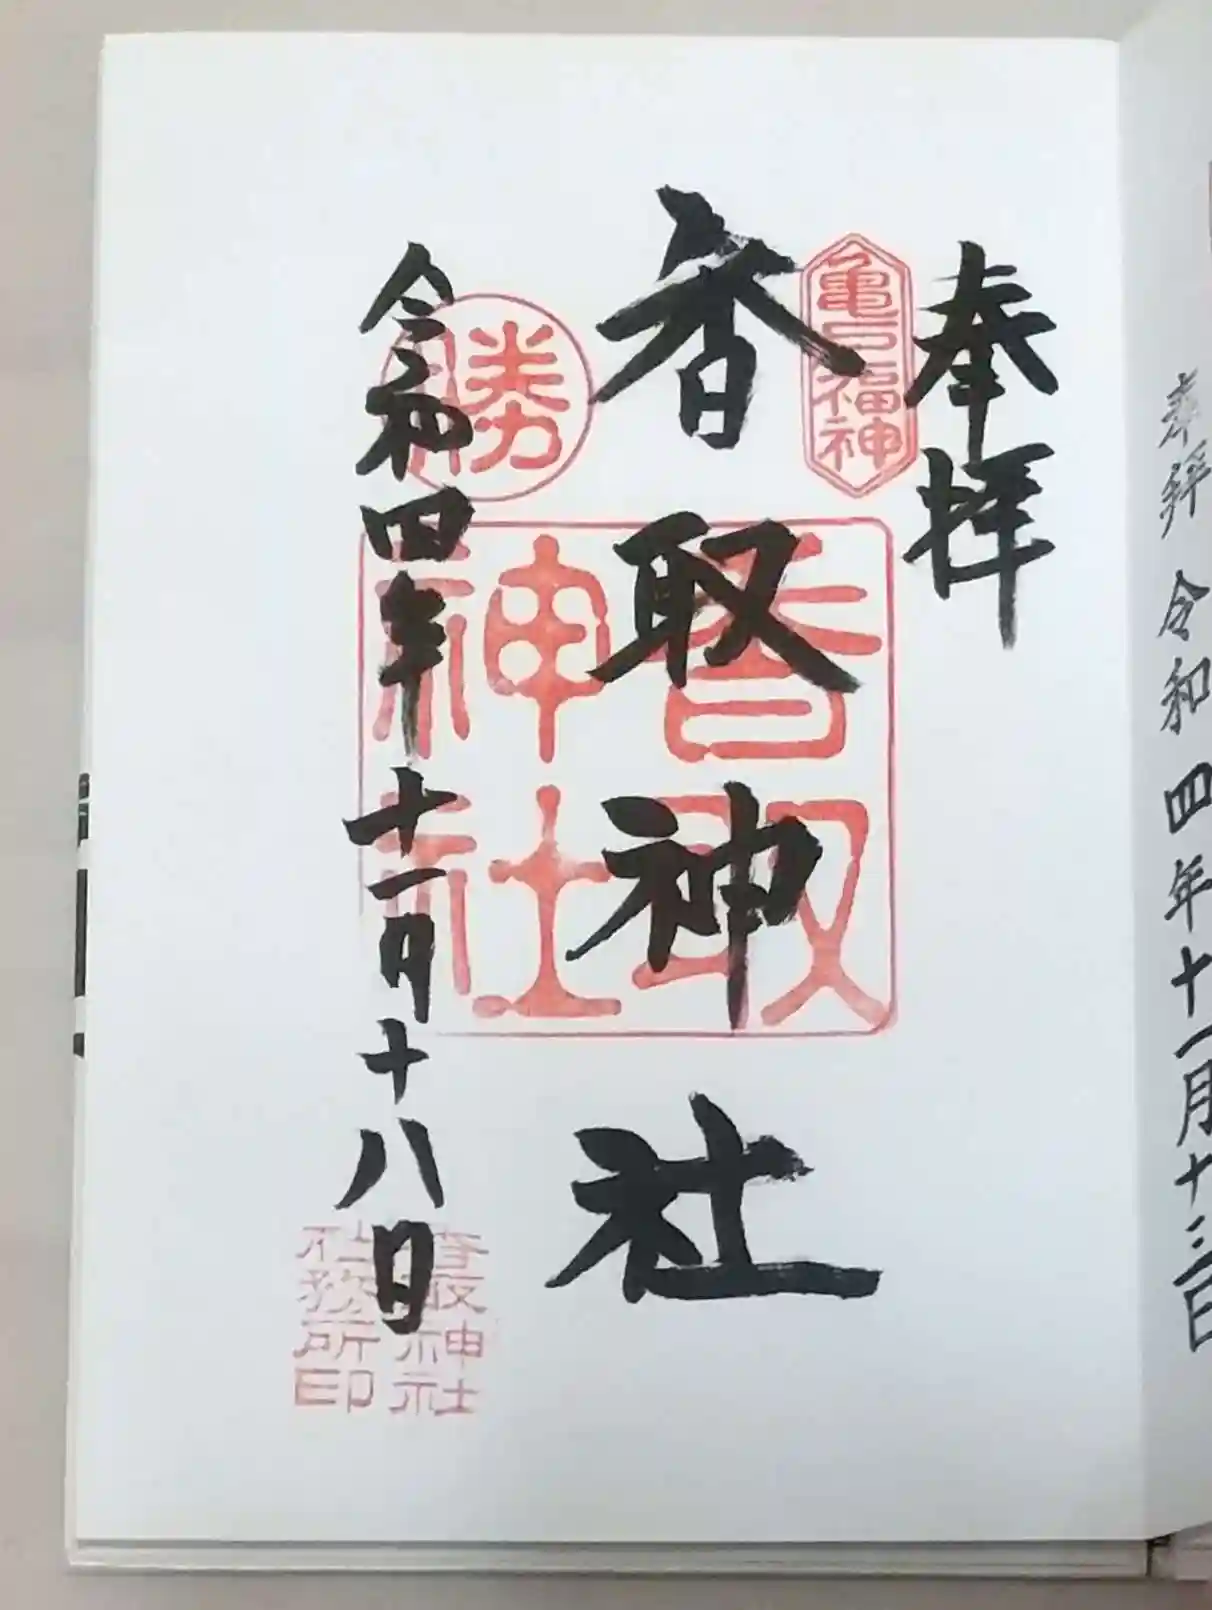 奉拝 令和四年十一月十三日
奉拝
亀戸福神
香取神社
香取神社
勝
令和四年十一月十八日
香取神社
社務所印